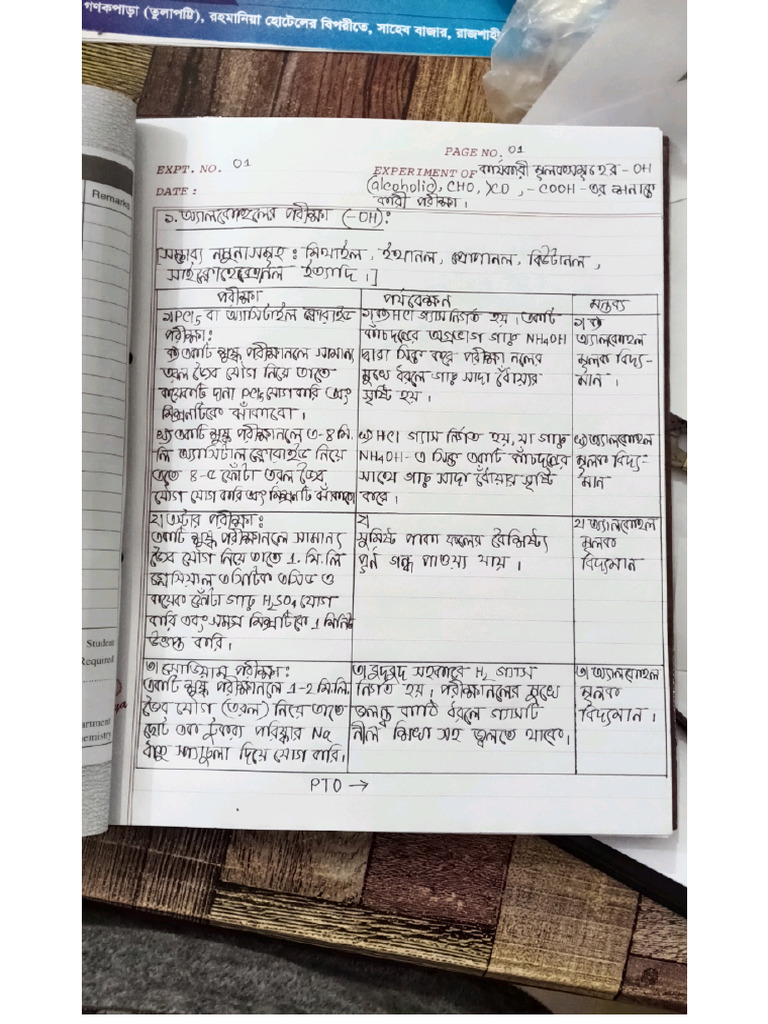 গণকপাড়া (তুলাপট্টি), রহমানিয়া হোটেলের বিপরীতে, সাহেব বাজার, রাজশাহী
Remarks
Student
Required
artment
emistry
PAGE NO. 01
EXPT. NO. 01
EXPERIMENT OF কার্যকারী মূলকসমূহের -OH
DATE :
(alcoholic), CHO, >CO, -COOH-এর শনাক্ত
কারী পরীক্ষা।
১. অ্যালকোহলের পরীক্ষা (-OH):
[সম্ভাব্য নমুনাসমূহ : মিথাইল, ইথানল, প্রোপানল, বিউটানল,
ইত্যাদি।]
পরীক্ষা
পর্যবেক্ষন
মন্তব্য
১) PCl5 বা অ্যাসিটাইল ক্লোরাইড
পরীক্ষা:
ক) একটি শুষ্ক পরীক্ষানলে সামান্য
তরল জৈব যৌগ নিয়ে তাতে
কয়েকটি দানা PCl5 যোগ করি এবং
মিশ্রনটিকে ঝাঁকাবো।
১) ক) HCl গ্যাস নির্গত হয়। একটি
কাঁচদন্ডের অগ্রভাগ গাঢ় NH4OH
দ্বারা সিক্ত করে পরীক্ষা নলের
মুখে ধরলে গাঢ় সাদা ধোঁয়ার
সৃষ্টি হয়।
১) ক)
অ্যালকোহল
মূলক বিদ্য-
মান।
খ) একটি শুষ্ক পরীক্ষানলে ৩-৪ মি.
লি অ্যাসিটাইল ক্লোরাইড নিয়ে
এতে ৪-৫ ফোঁটা তরল জৈব
যৌগ যোগ করি এবং মিশ্রনটি ঝাঁকাবো
খ) HCl গ্যাস নির্গত হয়, যা গাঢ়
NH4OH-এ সিক্ত একটি কাঁচদন্ডের
সাথে গাঢ় সাদা ধোঁয়ার সৃষ্টি
করে।
খ) অ্যালকোহল
মূলক বিদ্য-
মান
২) এস্টার পরীক্ষা:
একটি শুষ্ক পরীক্ষানলে সামান্য
জৈব যৌগ নিয়ে তাতে 1. মি.লি
গ্লেসিয়াল এসিটিক এসিড ও
কয়েক ফোঁটা গাঢ় H2SO4 যোগ
করি এবং সমগ্র মিশ্রনটিকে 1 মিনিট
উত্তপ্ত করি।
২)
সুমিষ্ট পাকা ফলের বৈশিষ্ট্য
পূর্ন গন্ধ পাওয়া যায়।
২) অ্যালকোহল
মূলক
বিদ্যমান
৩) সোডিয়াম পরীক্ষা:
একটি শুষ্ক পরীক্ষানলে 1-2 মি.লি.
জৈব যৌগ (তরল) নিয়ে তাতে
ছোট এক টুকরা পরিষ্কার Na
ধাতু দিয়ে যোগ করি।
৩) বুদবুদ সহকারে H2 গ্যাস
নির্গত হয়। পরীক্ষানলের মুখে
জলন্ত কাঠি ধরলে গ্যাসটি
নীল শিখা সহ জ্বলতে থাকে।
৩) অ্যালকোহল
মূলক
বিদ্যমান।
PTO →